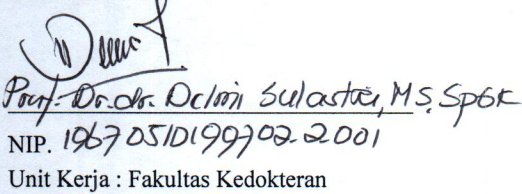 Prof. Dr. dr. Delmi Sulastri, MS, SpGK
NIP. 19670510199702.2.001
Unit Kerja : Fakultas Kedokteran